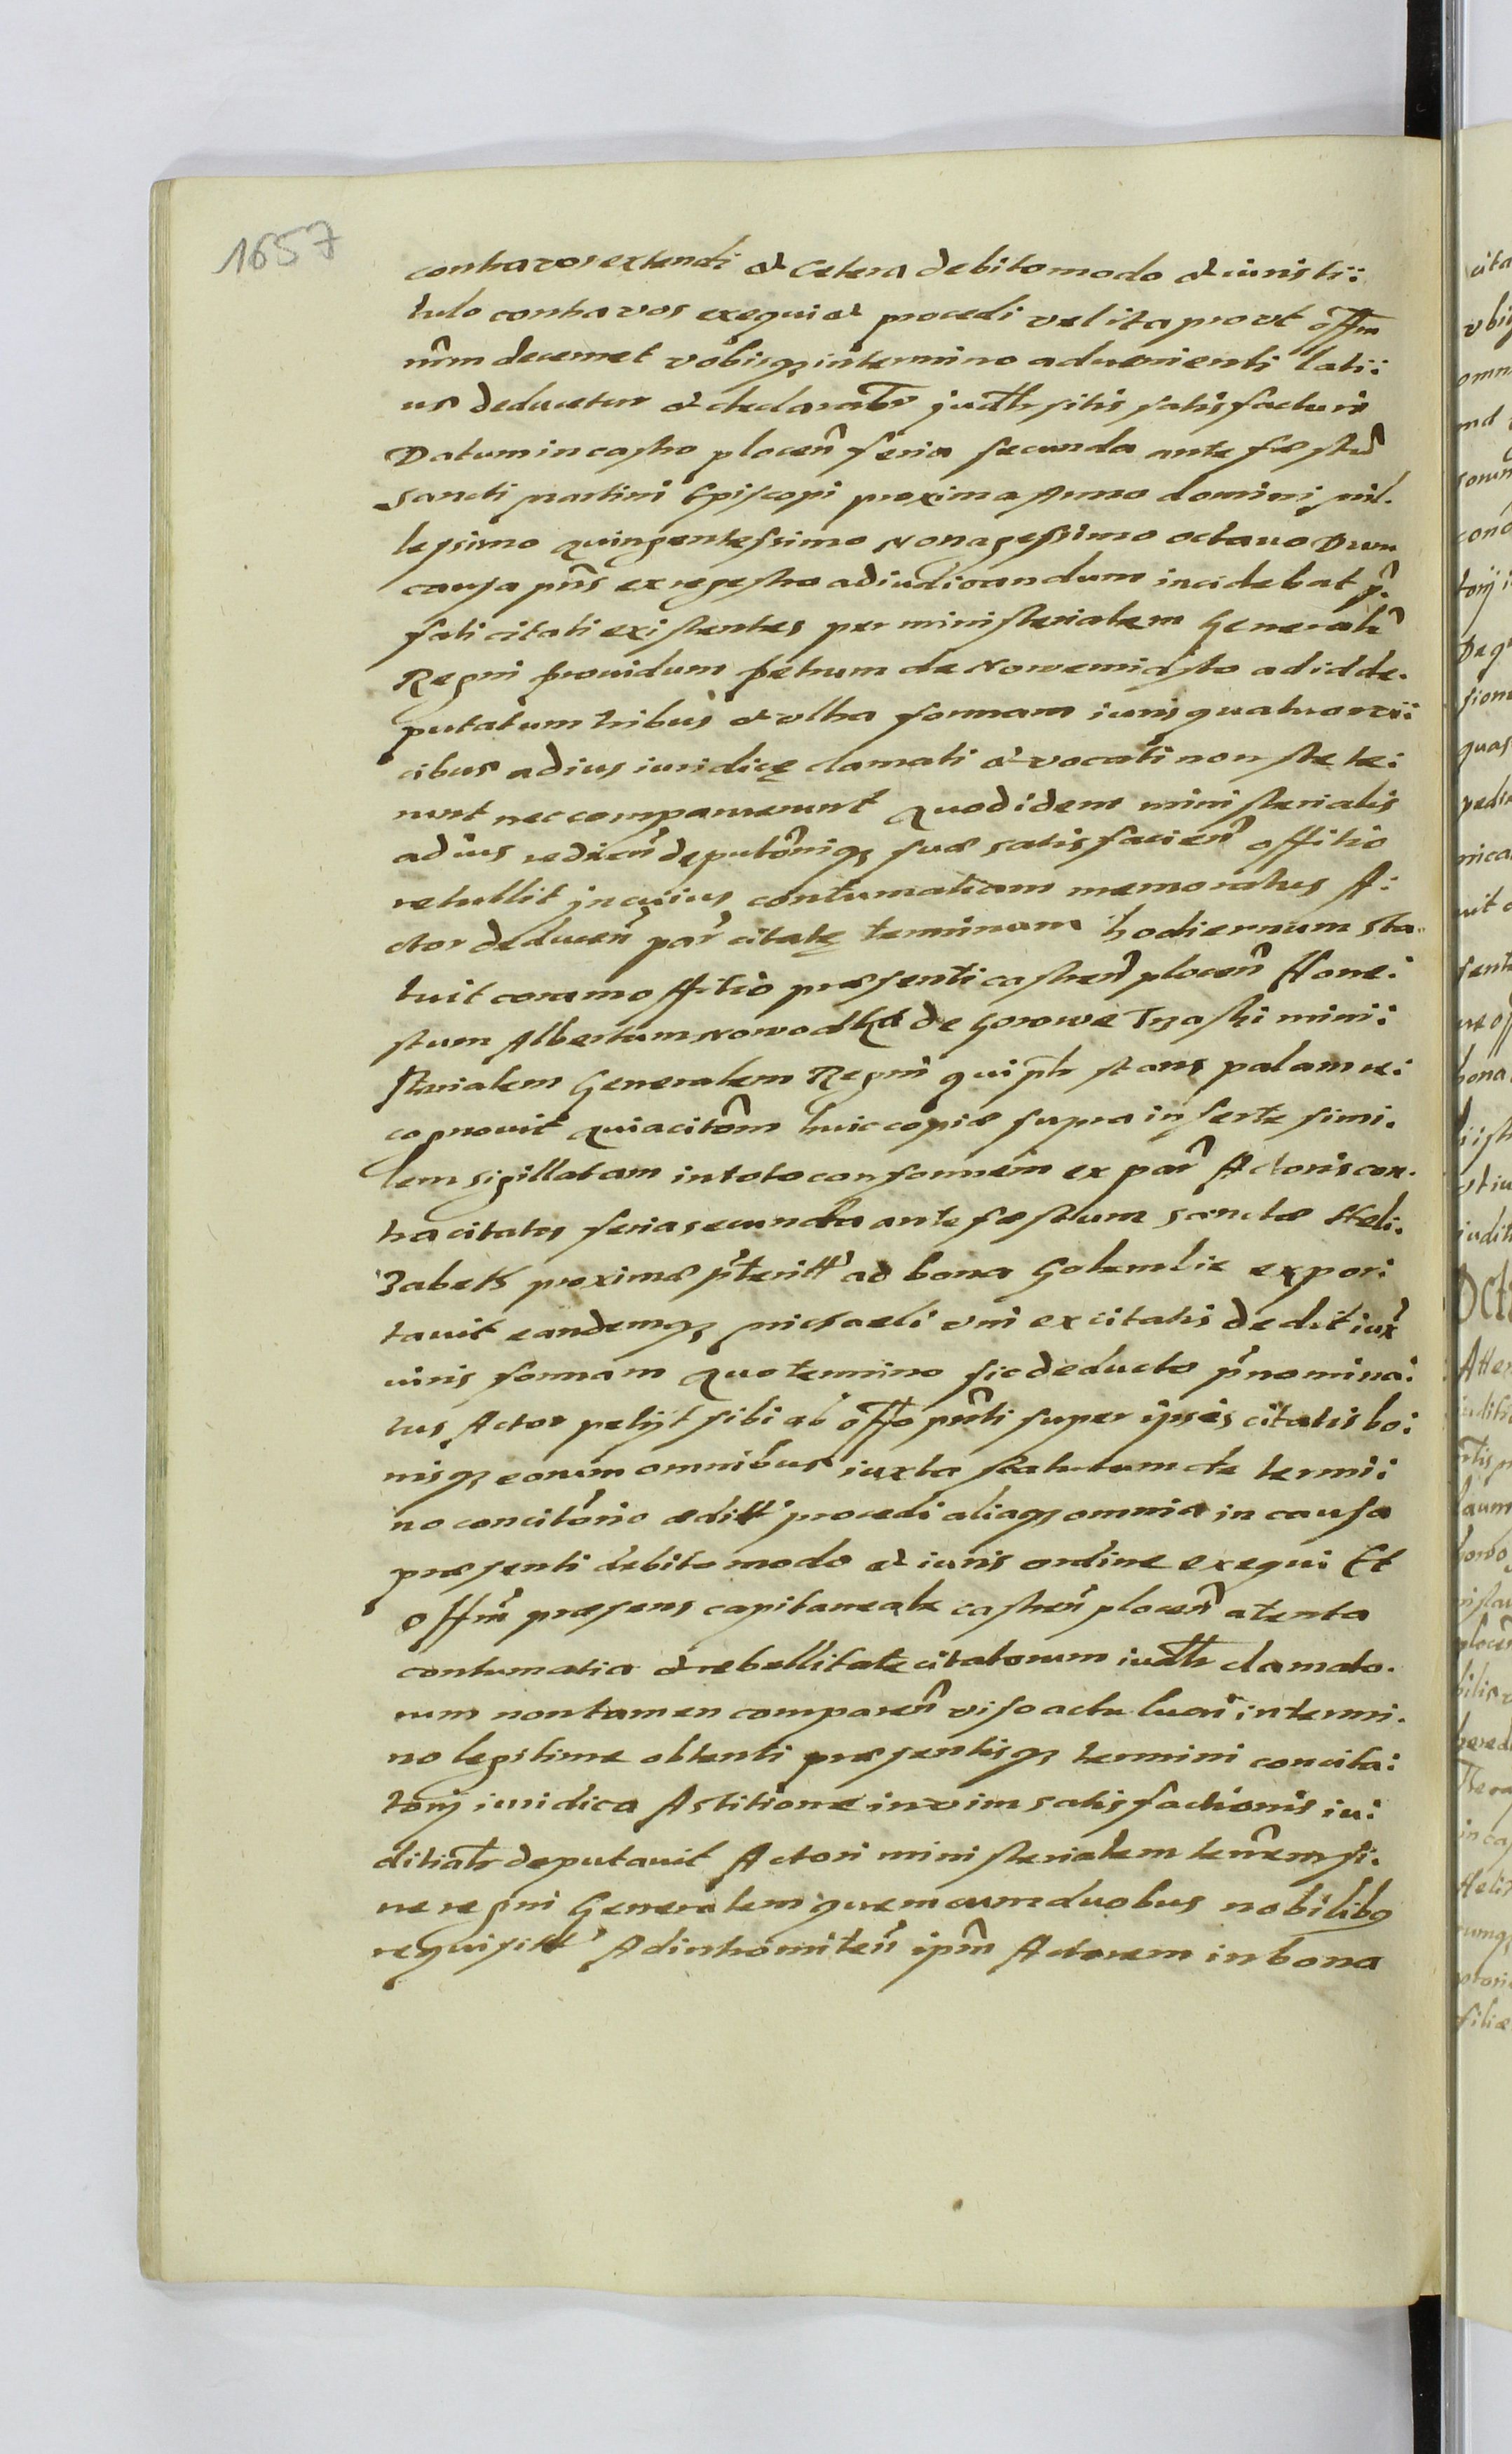 1657
contra vos extendi et Cetera debito modo et iuris ti:
tulo contra vos exequi et procedi vel ita prout offm
nrm decernet vobisq in termino advenienti lati:
us deducetur et declarabr judlr sitis satisfacturi
Datum in castro plocen feria secunda ante festu
Sancti martini Episcopi proxima Anno domini mil.
lesimo quingentessimo Nonagessimo octauo Dum
causa pns ex regestro adiudicandum incidebat p.
fati citati existentes per ministerialem Generale
Regni prouidum petrum de Nowemiasto ad id de.
putatum tribus et vltra formam iuris quatuor vi:
cibus ad ius iuridicę clamati et vocati non stete:
runt nec comparuerunt Quod idem ministerialis
ad ius redien deputonisq suæ satisfacien offitio
retullit in cuius contumatiam memoratus A:
ctor deducen par citatę terminum hodiernum sta.
tuit coram offitio præsenti castren plocen Hone:
stum Albertum Nowodka de Gorowe Trzaski mini:
sterialem Generalem Regni qui plr stans palam re:
cognouit Quia citom huic copiæ supra inserte simi.
lem sigillatam in toto conformem ex par Actoris con.
tra citatos feria secunda ante festum sanctæ Heli.
zabeth proxime pteritt ad bona Golemlie expor:
tauit eandemq michaeli vni ex citatis dedit iux
iuris formam Quo termino sic deducto pnomina:
tus Actor petijt sibi ab offo pnti super ipsis citatis bo:
nisq eorum omnibus iuxta statutum de termi:
no concitorio æditt procedi aliaq omnia in causa
præsenti debito modo et iuris ordine exequi Et
offm præsens capitaneale castren plocen atenta
contumatia et rebellitate citatorum iudlr clamato.
rum non tamen comparen viso actu lucri in termi.
no legitime obtenti præsentisq termini concita:
torij iuridica Astitione in vim satisfactionis iu:
ditialr deputauit Actori ministerialem terrem si.
ue regni Generalem quem cum duobus nobilibq
requisitt Ad intromiten ipm Actorem in bona